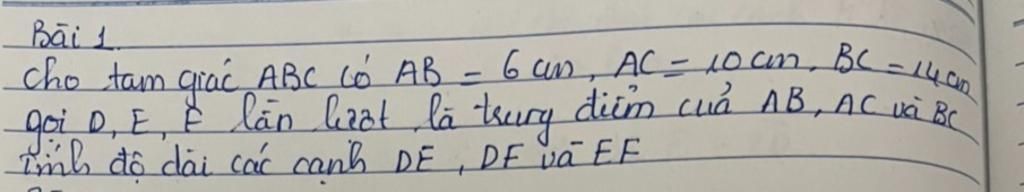 Bài 1.
Cho tam giác ABC có AB = 6 cm, AC = 10 cm, BC = 14 cm
gọi D, E, F lần lượt là trung điểm cuả AB, AC và BC
tính độ dài các cạnh DE, DF và EF